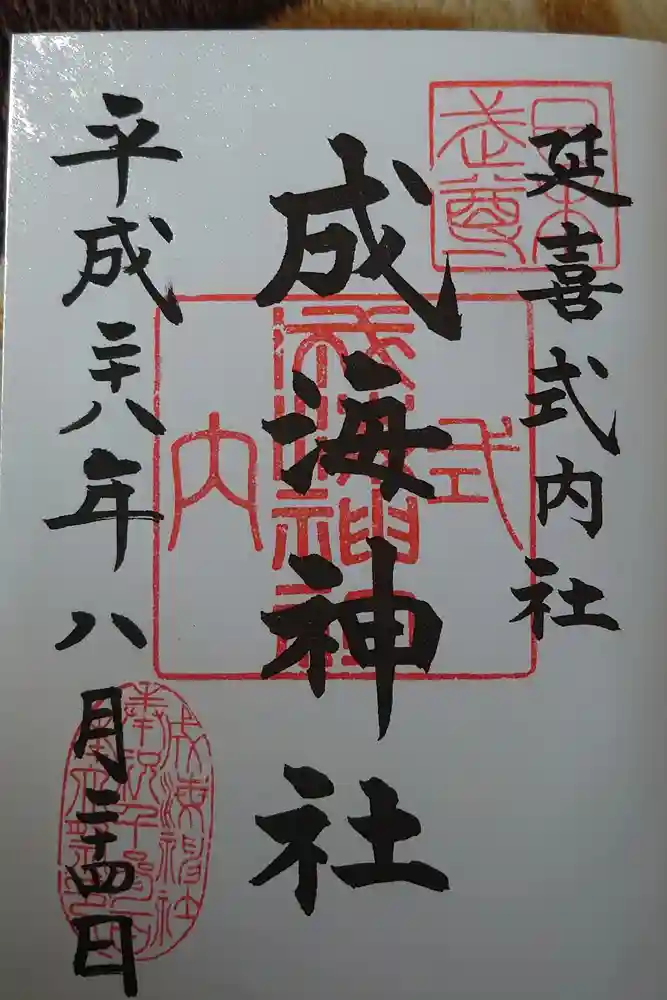 延喜式内社
日本武尊
成海神社
式内
成海神社
平成二十八年八月二十四日
成海神社